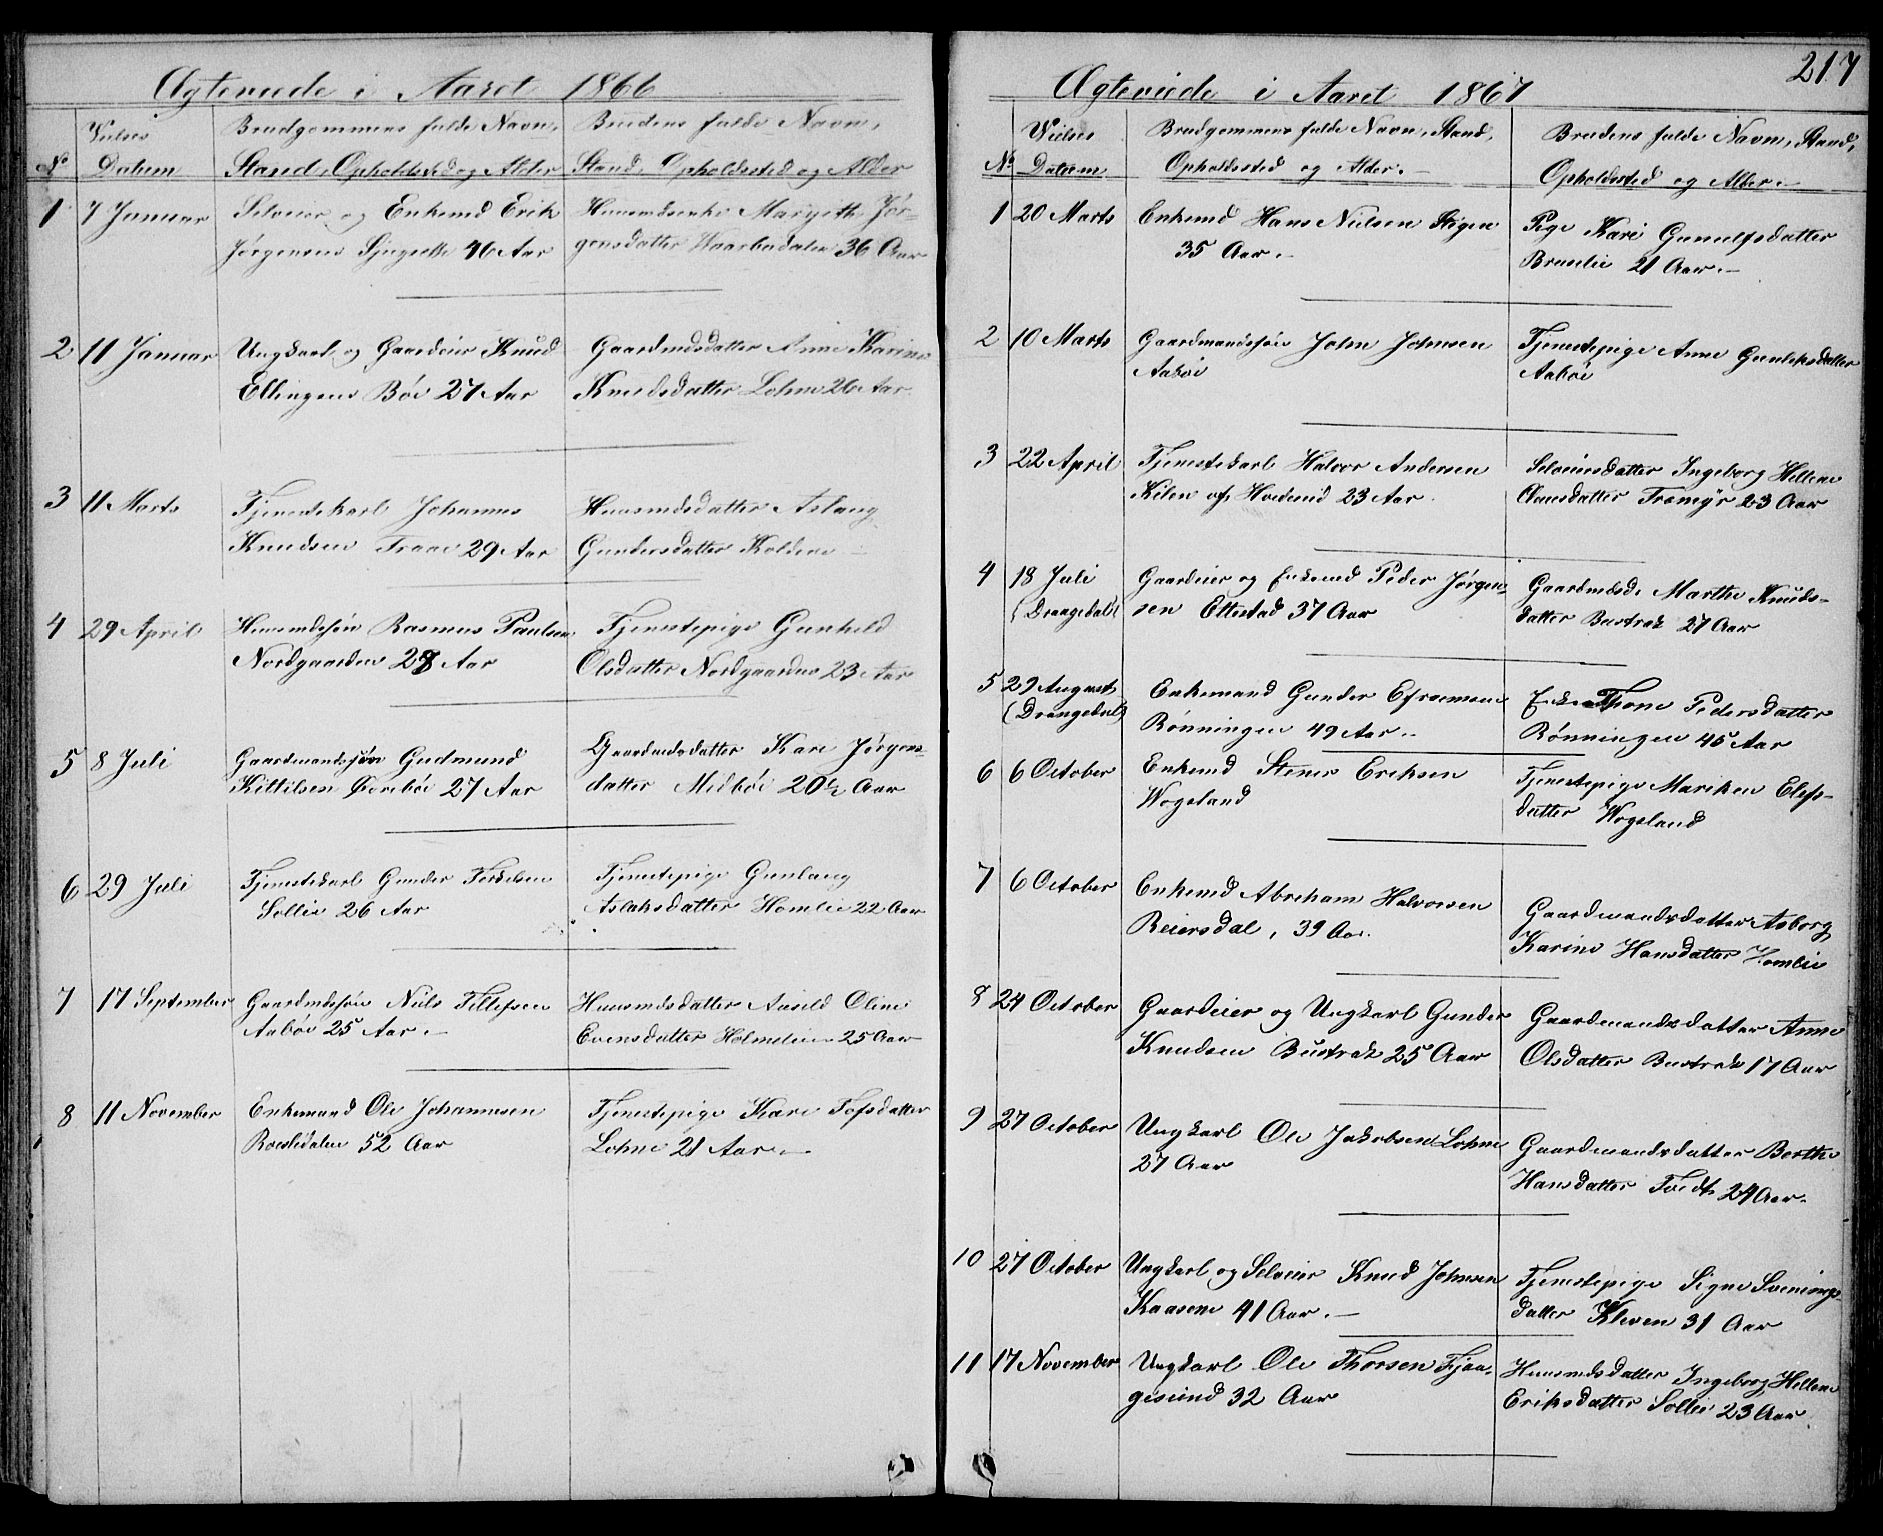 Ægteviede i Aaret 1866
No
Vielses Datum
Brudgommens fulde Navn, Stand, Opholdsted og Alder
Brudens fulde Navn, Stand, Opholdssted og Alder
1 7 Januar
Selveier og Enkemd Erik
Jørgensen 46 Aar
Huusmdsenke Margethe Jør-
gensdatter 36 Aar
2 11 Januar
Ungkarl og Gaardeier Knud
Ellingsen Böe 27 Aar
Gaardmdsdatter Anne Karine
Knudsdatter Lohne 26 Aar
3 11 Marts
Tjenestekarl Johannes
Knudsen Traae 29 Aar
Huusmdsdatter Aslaug
Gundersdatter Kolden
4 29 April
Huusmdssøn Rasmus Paulsen
Nordgaarden 28 Aar
Tjenestepige Gunhild
Olsdatter Nordgaarden 23 Aar
5 8 Juli
Gaardmandssøn Gudmund
Kittilsen 27 Aar
Gaardmdsdatter Kari Jørgens-
datter Midböe 20½ Aar
6 29 Juli
Tjenestekarl Gunder Terkelsen
Sollie 26 Aar
Tjenestepige Gunlaug
Aslaksdatter Homlie 22 Aar
7 17 September
Gaardmdssøn Niels Tellefsen
Aaböe 25 Aar.-
Huusmdsdatter Aasild Oline
Evensdatter Holmelien 25 Aar
8 11 November
Enkemand Ole Johannesen
52 Aar
Tjenestepige Kari Tofsdatter
Lohne 21 Aar.-
217
Ægteviede i Aaret 1867
No
Vielses Datum
Brudgommens fulde Navn, Stand,
Opholdssted og Alder.-
Brudens fulde Navn, Stand,
Opholdssted og Alder.-
1 20 Marts
Enkemd Hans Nielsen
35 Aar.-
Pige Kari Gunulfsdatter
Brunlie 21 Aar.-
2 10 Marts
Gaardmandssøn John Johnsen
Aaböe
Tjenestepige Anne Gunleksdatter
Aaböe
3 22 April
Tjenestekarl Halvor Andersen
Kilen af Hvideseid 23 Aar.
Selveiersdatter Ingeborg Hellene
Clausdatter Tramyr 23 Aar
4 18 Juli
(Drangedal)
Gaardeier og Enkemd Peder Jørgen-
sen Ettestad 37 Aar
Gaardmdsd. Marthe Knuds-
datter Bustrak 27 Aar
5 29 August
(Drangedal)
Enkemand Gunder Efraimsen
Rönningen 49 Aar.-
Enke Thone Pedersdatter
Rönningen 45 Aar
6 6 October
Enkemd Stener Eriksen
Wogsland
Tjenestepige Mariken Elefs-
datter Wogsland
7 6 October
Enkemd Abraham Halvorsen
Reiersdal, 39 Aar.
Gaardmandsdatter Asborg
Karine Hansdatter Homlie
8 24 October
Gaardeier og Ungkarl Gunder
Knudsen Bustrak 25 Aar
Gaardmandsdatter Anne
Olsdatter Bustrak 17 Aar
9 27 October
Ungkarl Ole Jakobsen Lohne
27 Aar
Gaardmandsdatter Berthe
Hansdatter Tvedt 24 Aar.
10 27 October
Ungkarl og Selveier Knud Johnsen
Kaasene 41 Aar.-
Tjenestepige Signe Svenings-
datter Kleven 31 Aar
11 17 November
Ungkarl Ole Thorsen Tjaa-
gesund 32 Aar
Huusmdsdatter Ingeborg Hellene
Eriksdatter Sollie 23 Aar.